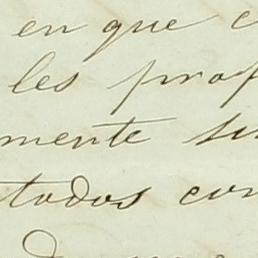 en que c
les prof
mente su
todos con